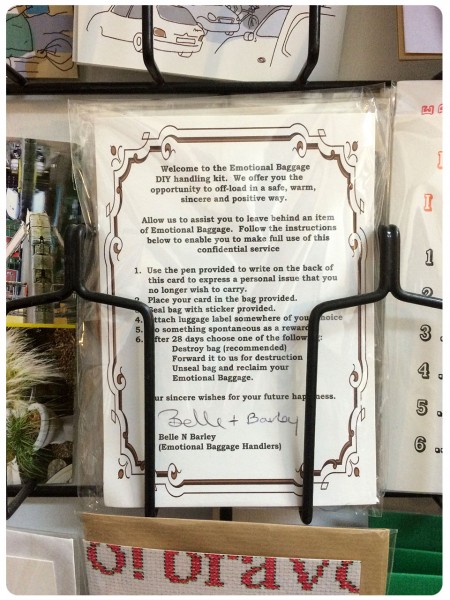 Welcome to the Emotional Baggage
DIY handling kit. We offer you the
opportunity to off-load in a safe, warm,
sincere and positive way.
Allow us to assist you to leave behind an item
of Emotional Baggage. Follow the instructions
below to enable you to make full use of this
confidential service
1. Use the pen provided to write on the back of
this card to express a personal issue that you
no longer wish to carry.
2. Place your card in the bag provided.
Seal bag with sticker provided.
4. Attach luggage label somewhere of your choice
5. Do something spontaneous as a reward
6. After 28 days choose one of the following:
Destroy bag (recommended)
Forward it to us for destruction
Unseal bag and reclaim your
Emotional Baggage.
Our sincere wishes for your future happiness.
Belle + Barley
Belle N Barley
(Emotional Baggage Handlers)
1
2
3
4
5
6
bravo